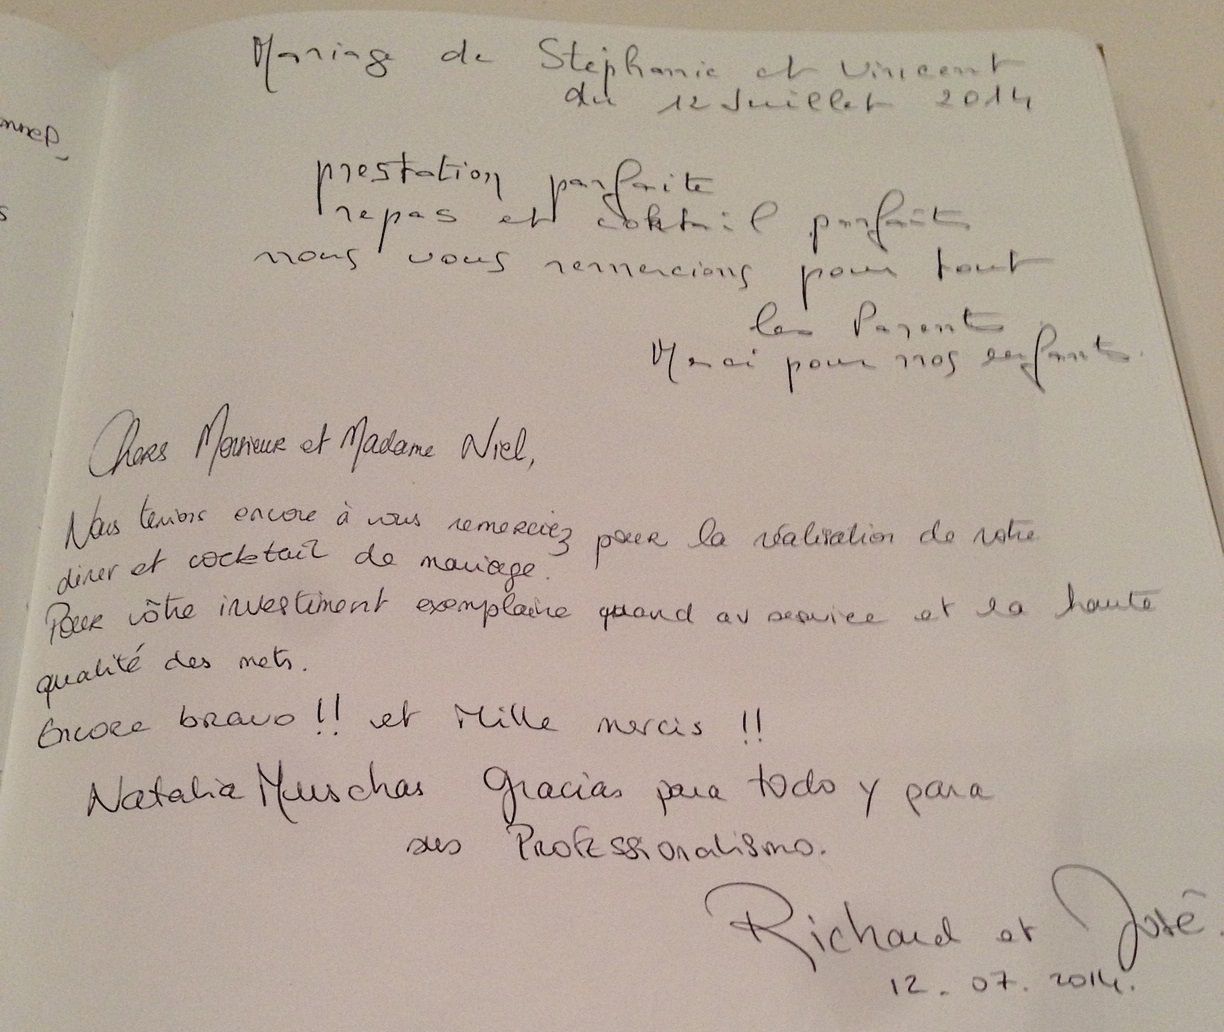 Mariage de Stéphanie et Vincent
du 12 Juillet 2014
prestation parfaite
repas et coktail parfaits
nous vous remercions pour tout
les Parents
Merci pour nos enfants.
Chers Monsieur et Madame Niel,
Nous tenions encore à vous remerciez pour la réalisation de notre
diner et cocktail de mariage.
Pour vôtre investiment exemplaire quand au service et la haute
qualité des mets.
Encore bravo !! et Mille mercis !!
Natalia Muschas Gracias para todo y para
sus Professionalismo.
Richard et José.
12.07.2014.